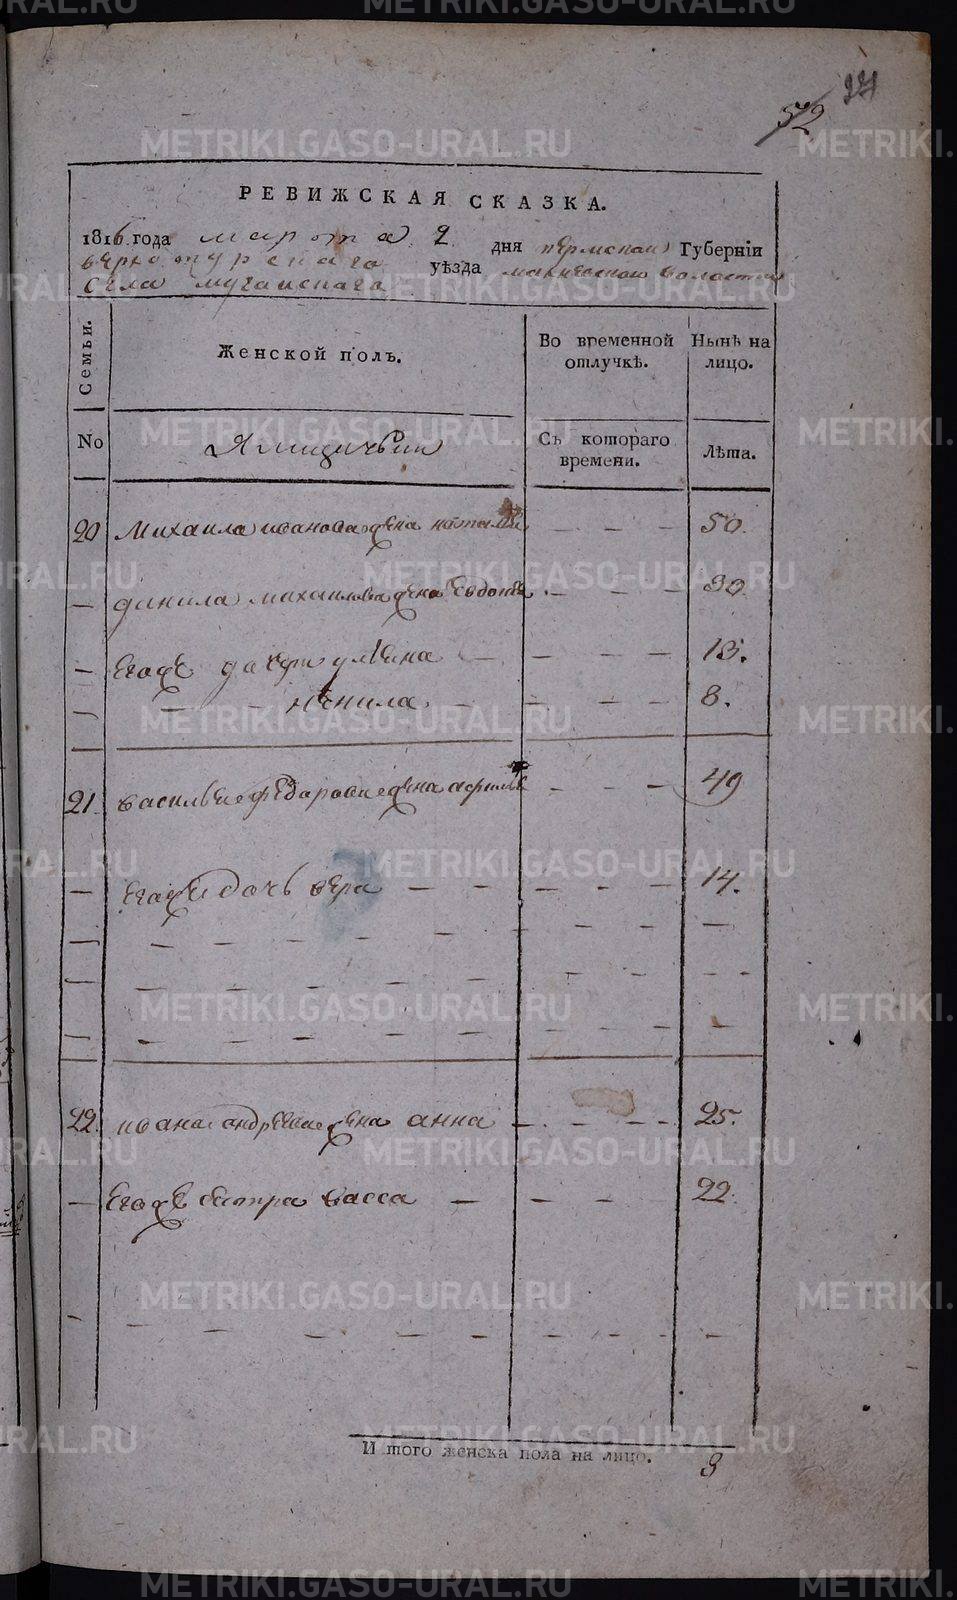 52
РЕВИЖСКАЯ СКАЗКА.
1816 года марта 2 дня пермской Губерніи
верхотурскаго уѣзда волости
села мугайскаго
Семьи.
Женской полъ.
Во временной отлучкѣ.
Нынѣ на лицо.
No
Ямщичьи
Съ котораго времени.
Лѣта.
20 Михаила иванова жена наталья — — — 50.
— данила михаилова жена евдокия — — — 30
— Егоже дочери улиена — — — — 13.
— — — ненила — — — — 8.
21. василье федорове жена — — — 49
— Егоже дочь вера — — — — — 14.
22. ивана андреева жена анна — — — — 25.
— Егоже сестра васса — — — — 22.
И того женска пола на лицо. 8
METRIKI.GASO-URAL.RU